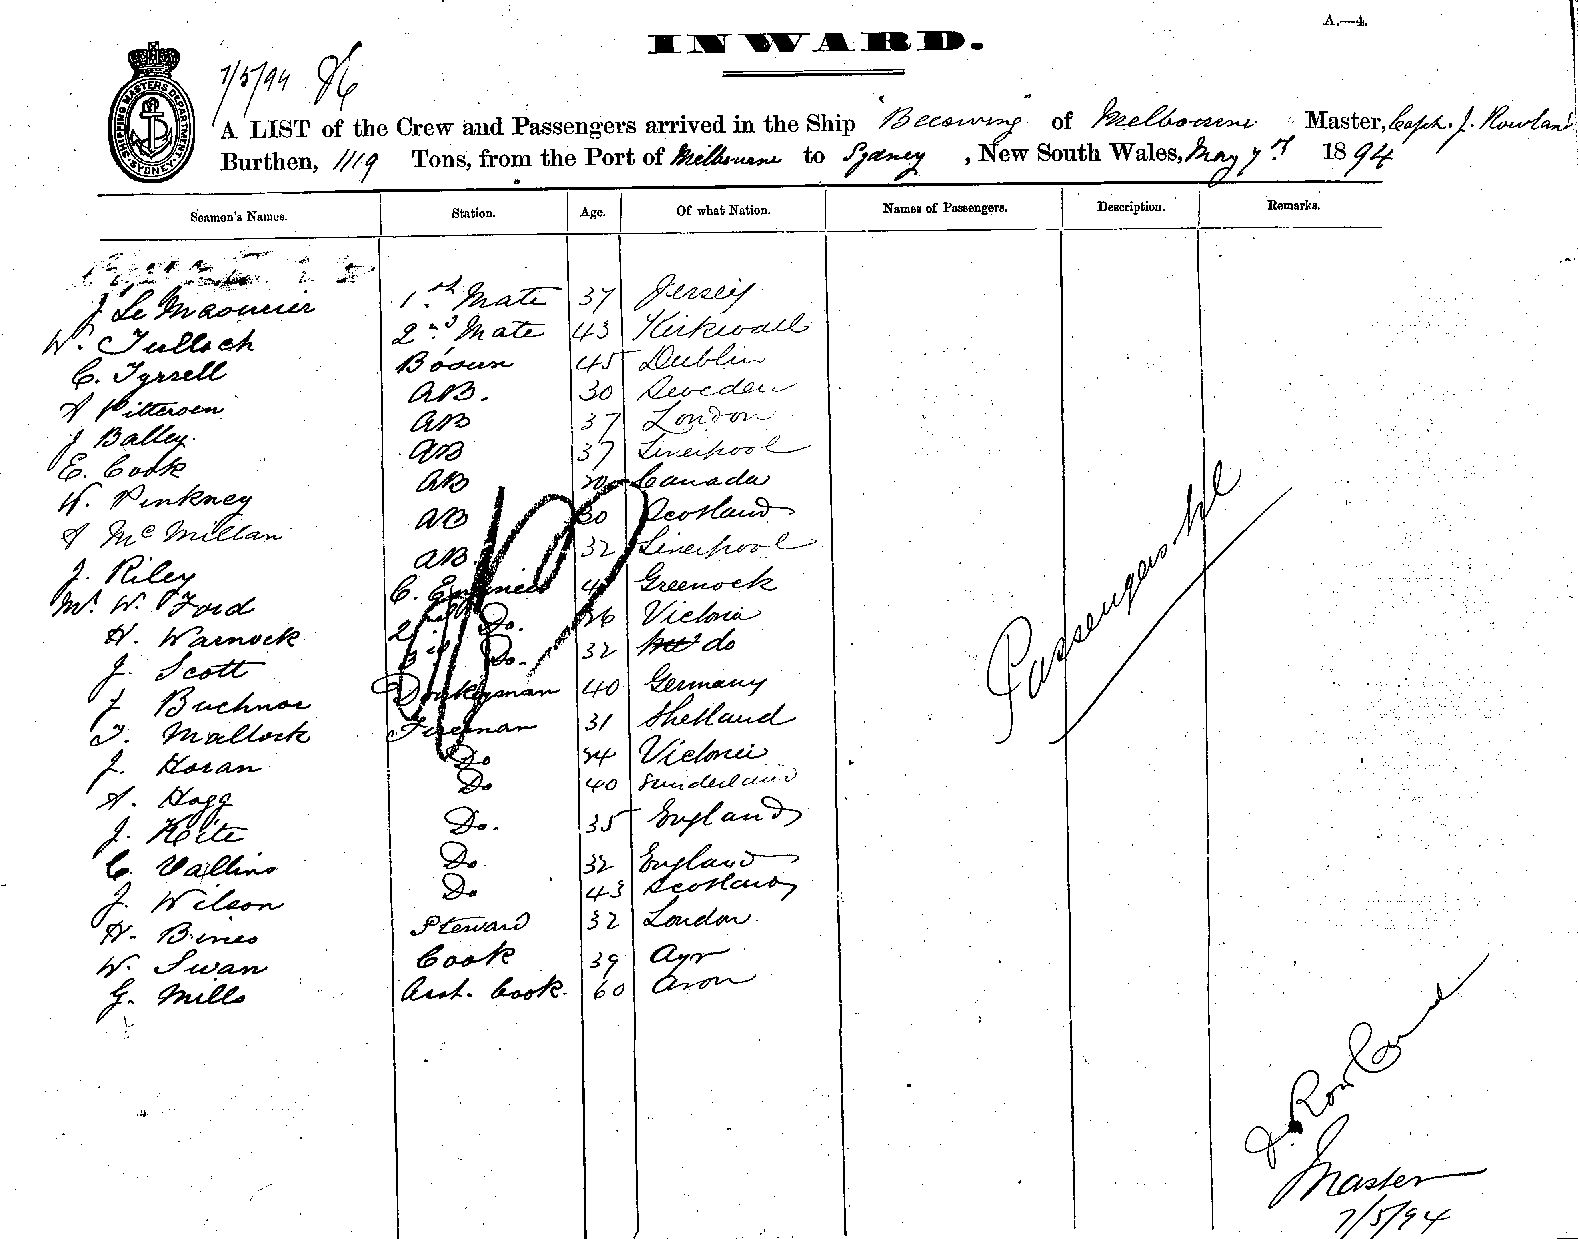 A.—4.
INWARD.
SHIPPING MASTERS DEPARTMENT SYDNEY
7/5/94 86
A LIST of the Crew and Passengers arrived in the Ship "Becowing" of Melbourne Master, Capt. J. Rowland
Burthen, 1119 Tons, from the Port of Melbourne to Sydney, New South Wales, May 7th 1894
Seamen's Names. Station. Age. Of what Nation. Names of Passengers. Description. Remarks.
J Le Mesurier 1st Mate 37 Jersey
W. Tulloch 2nd Mate 43 Kirkwall
C. Tyrrell Bosun 45 Dublin
A Pittersen AB. 30 Sweden
J Balley AB 37 London
E. Cook AB 37 Liverpool
W. Pinkney AB Canada
A McMillan AB 30 Scotland
J. Riley AB 32 Liverpool
Mr. W. Ford C. Engineer Greenock
H. Warnock 2nd Do. 26 Victoria
J. Scott Do. 32 do
J Buchnor Donkeyman 40 Germany
T. Mallock Fireman 31 Shetland
J. Horan Do 24 Victoria
A. Hogg Do 40 Sunderland
J. Keite Do. 35 England
C. Vallins Do. 32 England
J. Wilson Do 43 Scotland
H. Bines Steward 32 London
W. Swan Cook 39 Ayr
G. Mills Asst. Cook 60 Avon
Passengers Nil
J. Rowland
Master
7/5/94